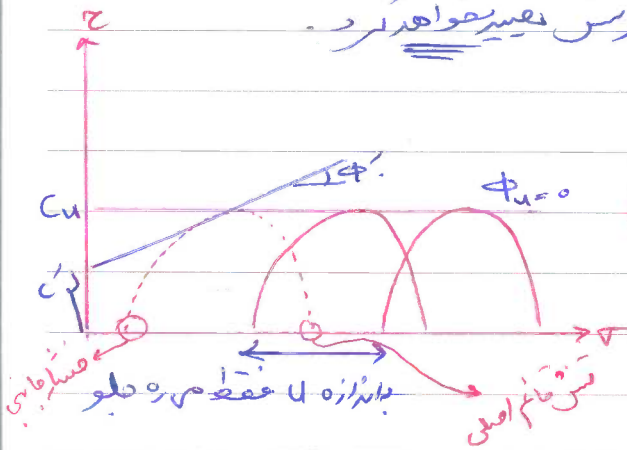 تغییر نخواهد کرد.
τ
Φ'
Cu
Φu=0
C'
σ
فشار جانبی
به اندازه u فقط میره جلو
تنش قائم اصلی